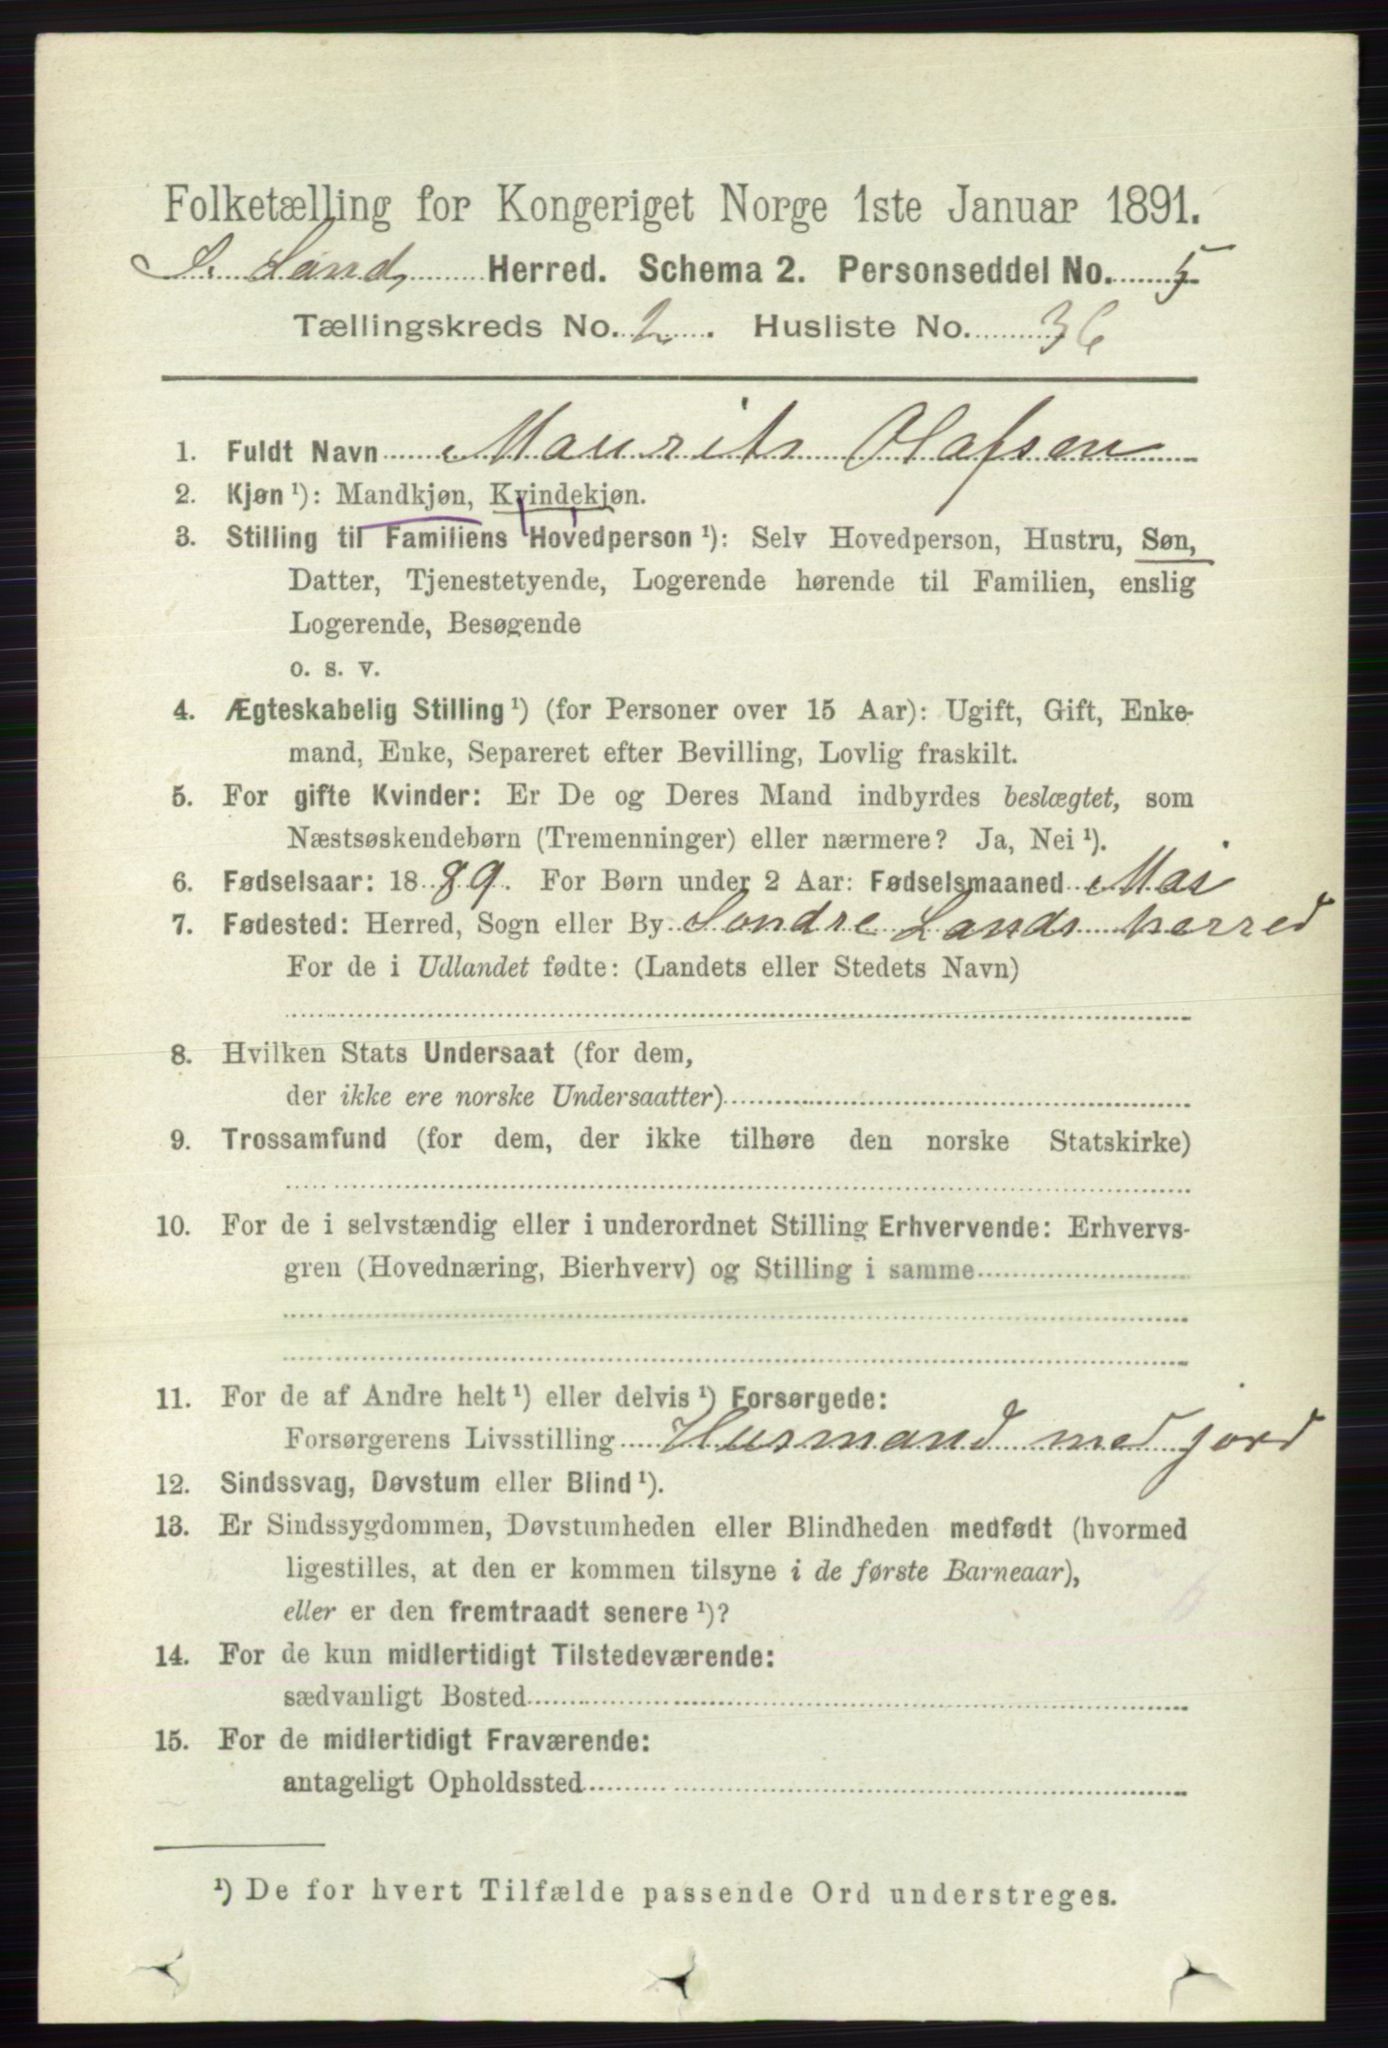 Folketælling for Kongeriget Norge 1ste Januar 1891.
S. Land, Herred. Schema 2. Personseddel No. 5
Tællingskreds No. 2. Husliste No. 36
1. Fuldt Navn Maurits Olafsen
2. Kjøn ¹): Mandkjøn, Kvindekjøn.
3. Stilling til Familiens Hovedperson ¹): Selv Hovedperson, Hustru, Søn,
Datter, Tjenestetyende, Logerende hørende til Familien, enslig
Logerende, Besøgende
o. s. v.
4. Ægteskabelig Stilling ¹) (for Personer over 15 Aar): Ugift, Gift, Enke-
mand, Enke, Separeret efter Bevilling, Lovlig fraskilt.
5. For gifte Kvinder: Er De og Deres Mand indbyrdes beslægtet, som
Næstsøskendebørn (Tremenninger) eller nærmere? Ja, Nei ¹).
6. Fødselsaar: 1889. For Børn under 2 Aar: Fødselsmaaned Mai
7. Fødested: Herred, Sogn eller By Sondre Lands herred
For de i Udlandet fødte: (Landets eller Stedets Navn)
8. Hvilken Stats Undersaat (for dem,
der ikke ere norske Undersaatter)
9. Trossamfund (for dem, der ikke tilhøre den norske Statskirke)
10. For de i selvstændig eller i underordnet Stilling Erhvervende: Erhvervs-
gren (Hovednæring, Bierhverv) og Stilling i samme
11. For de af Andre helt ¹) eller delvis ¹) Forsørgede:
Forsørgerens Livsstilling Husmand med jord
12. Sindssvag, Døvstum eller Blind ¹).
13. Er Sindssygdommen, Døvstumheden eller Blindheden medfødt (hvormed
ligestilles, at den er kommen tilsyne i de første Barneaar),
eller er den fremtraadt senere ¹)?
14. For de kun midlertidigt Tilstedeværende:
sædvanligt Bosted
15. For de midlertidigt Fraværende:
antageligt Opholdssted
¹) De for hvert Tilfælde passende Ord understreges.